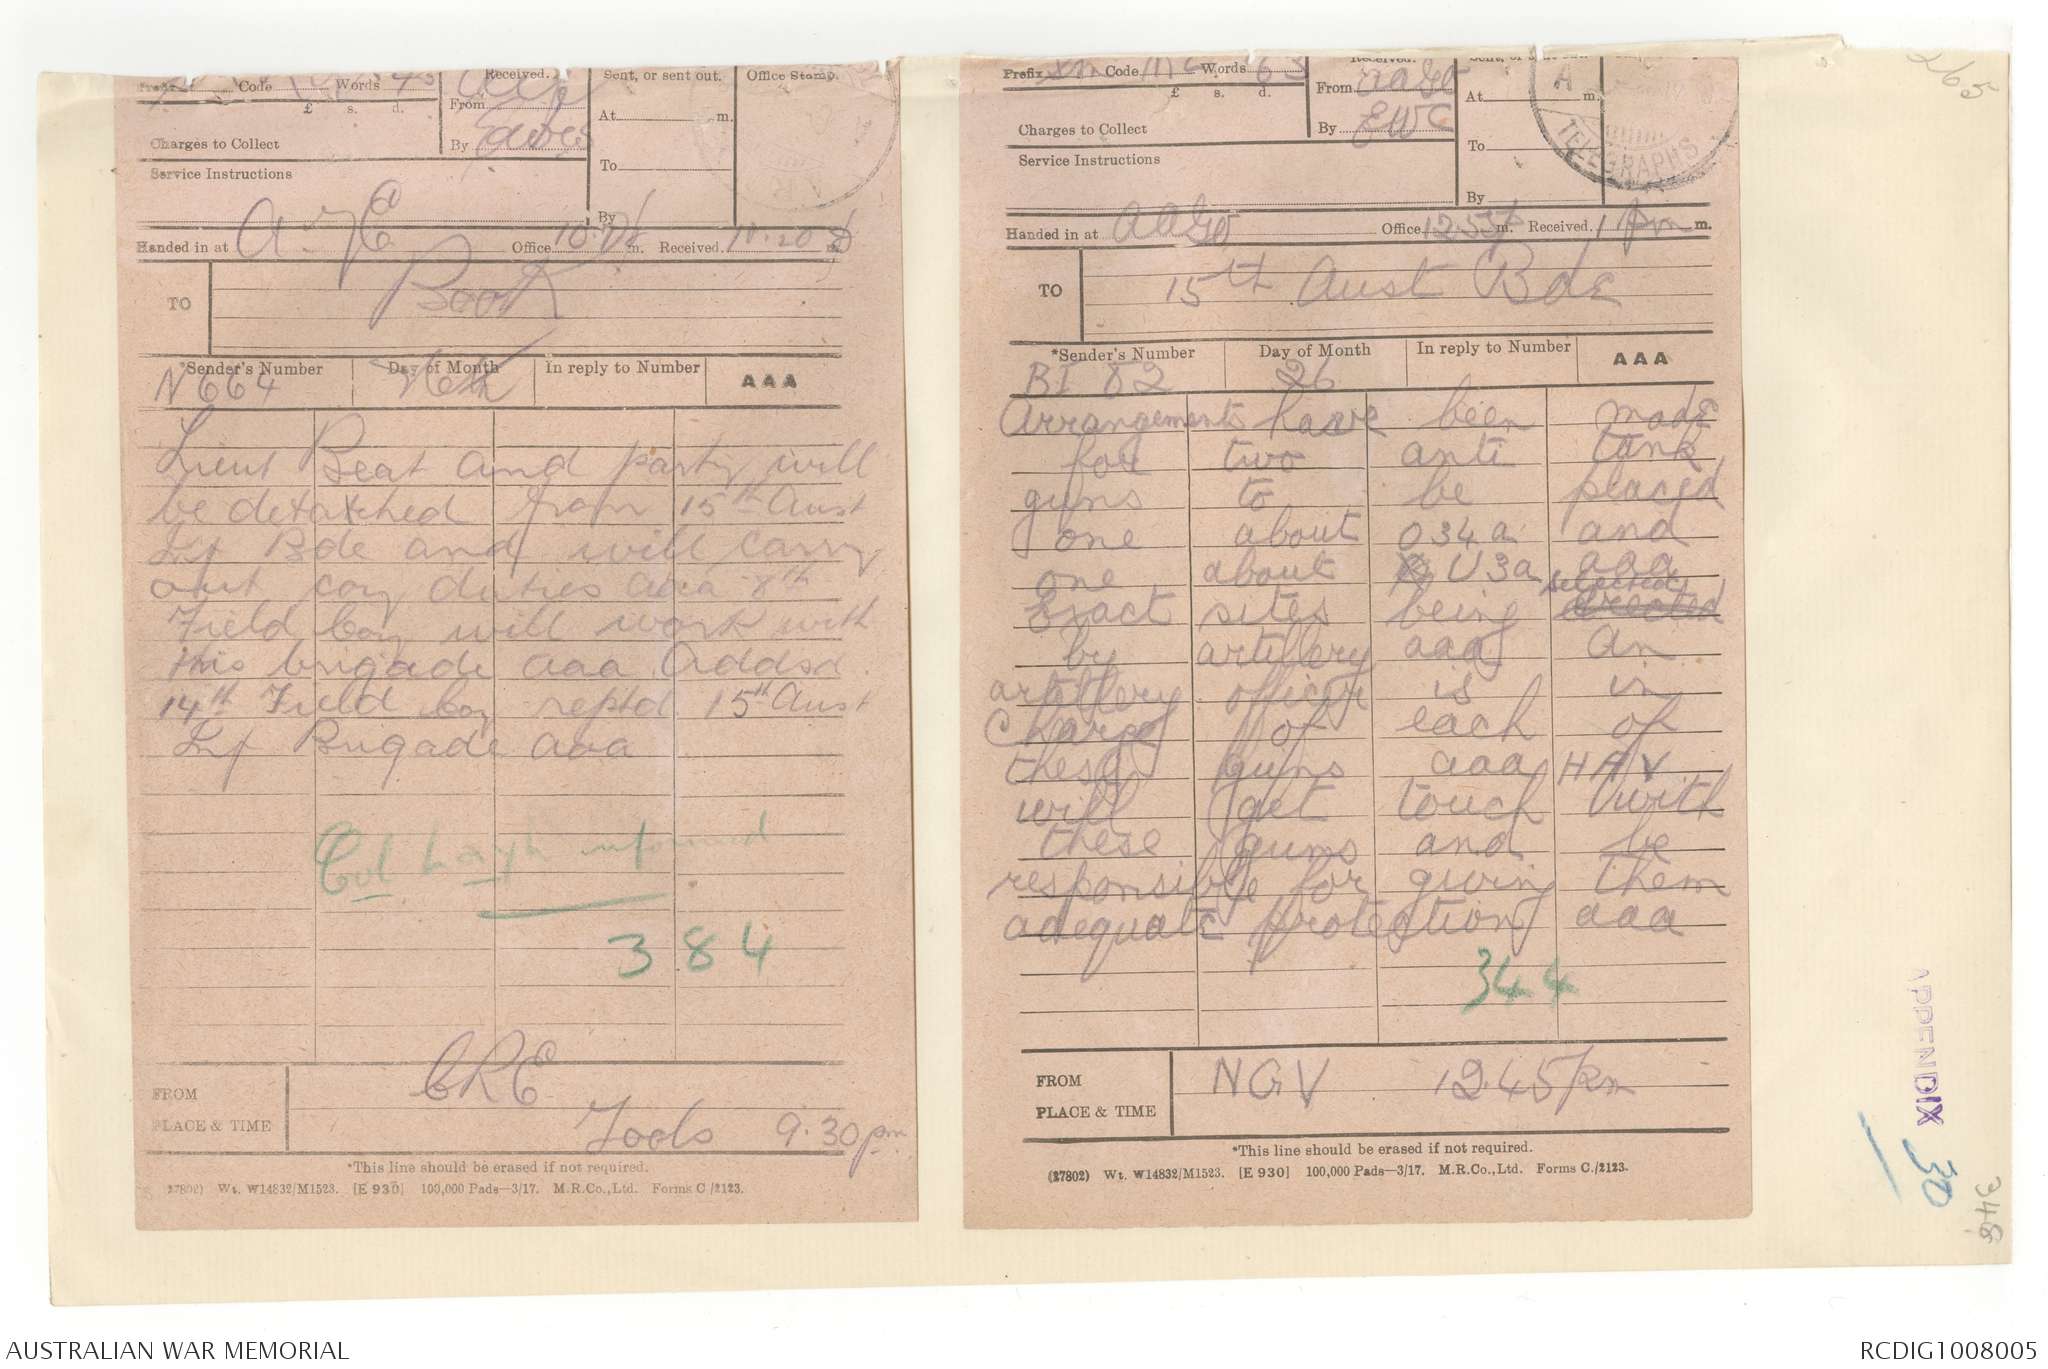 Prefix Code Words 43
Received.
Sent, or sent out.
Office Stamp.
£ s. d.
From
At m.
Charges to Collect
By
To
Service Instructions
By
Handed in at Office m. Received 10.20 m.
TO
Book
*Sender's Number Day of Month In reply to Number AAA
N 664 26th
Lieut Beat and party will
be detatched from 15th Aust
Inf Bde and will carry
out coy duties aaa 8th
Field Coy will work with
this brigade aaa Addsd
14th Field Coy reptd 15th Aust
Inf Brigade aaa
Col Layh informed
384
FROM
CRE
PLACE & TIME
Tools 9.30 pm
*This line should be erased if not required.
27802) Wt. W14832/M1523. [E 930] 100,000 Pads—3/17. M.R.Co., Ltd. Forms C/2123.
Prefix Sm Code Words 63
Received.
Sent, or sent out.
£ s. d.
From
At m.
Charges to Collect
By EWC
To
Service Instructions
By
TELEGRAPHS
Handed in at Office 12.55p m. Received 1 pm m.
TO
15th Aust Bde
*Sender's Number Day of Month In reply to Number AAA
BI 82 26
Arrangements have been made
for two anti tank
guns to be placed
one about O34a and
one about U3a aaa
Exact sites being selected
by artillery aaa An
artillery officer is in
Charge of each of
these guns aaa HAV
will get touch with
these guns and be
responsible for giving them
adequate protection aaa
344
FROM
NGV 12.45 pm
PLACE & TIME
*This line should be erased if not required.
(27802) Wt. W14832/M1523. [E 930] 100,000 Pads—3/17. M.R.Co., Ltd. Forms C./2123.
265
APPENDIX 30
348
AUSTRALIAN WAR MEMORIAL
RCDIG1008005